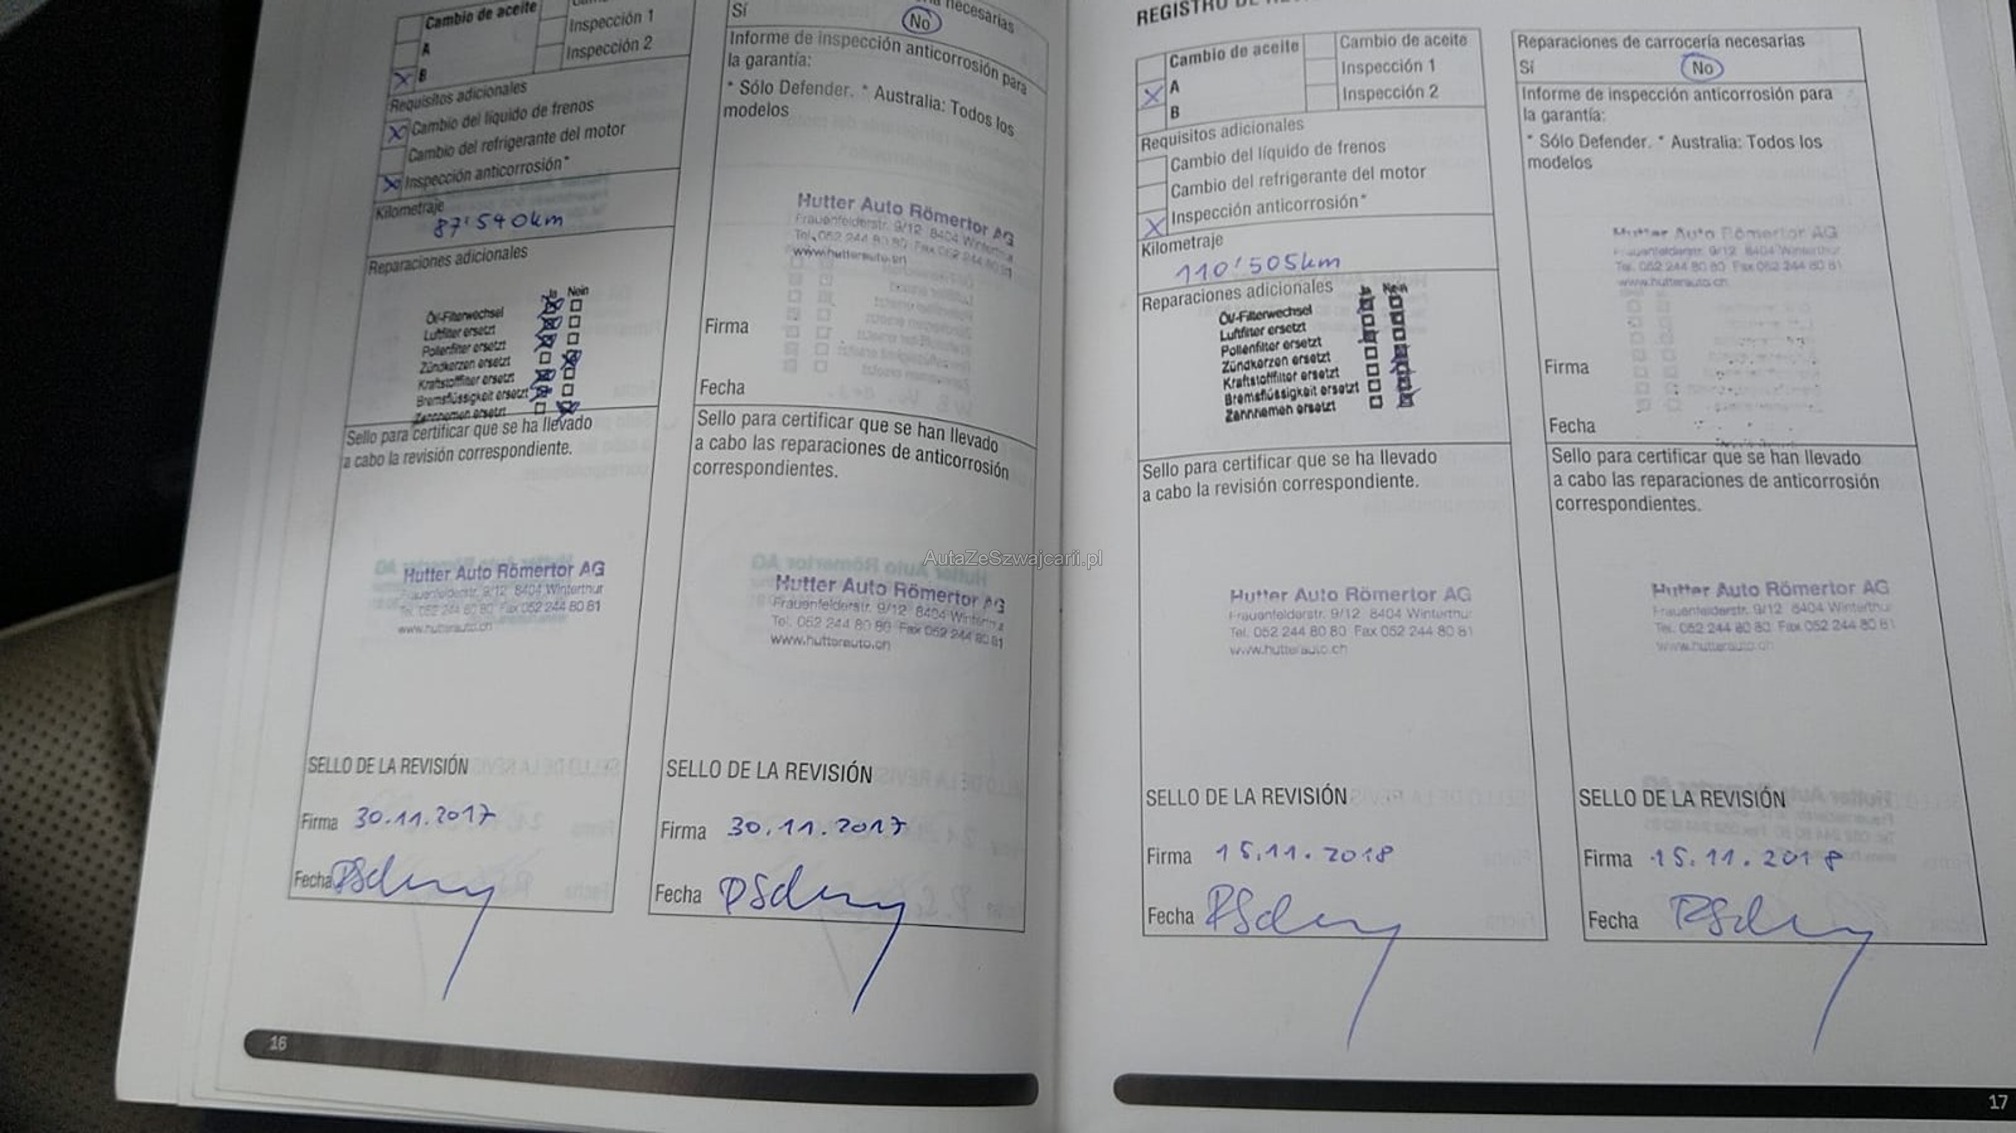 Cambio de aceite
A
B
Inspección 1
Inspección 2
Requisitos adicionales
Cambio del líquido de frenos
Cambio del refrigerante del motor
Inspección anticorrosión*
Kilometraje
87'540km
Reparaciones adicionales
Ja Nein
Öl-Filterwechsel
Luftfilter ersetzt
Pollenfilter ersetzt
Zündkerzen ersetzt
Kraftstofffilter ersetzt
Bremsflüssigkeit ersetzt
Zahnriemen ersetzt
Sello para certificar que se ha llevado
a cabo la revisión correspondiente.
Hutter Auto Römertor AG
Frauenfelderstr. 9/12 8404 Winterthur
Tel. 052 244 80 80 Fax 052 244 80 81
www.hutterauto.ch
SELLO DE LA REVISIÓN
Firma 30.11.2017
Fecha
16
necesarias
Sí No
Informe de inspección anticorrosión para
la garantía:
* Sólo Defender. * Australia: Todos los
modelos
Hutter Auto Römertor AG
Frauenfelderstr. 9/12 8404 Winterthur
Tel. 052 244 80 80 Fax 052 244 80 81
www.hutterauto.ch
Firma
Fecha
Sello para certificar que se han llevado
a cabo las reparaciones de anticorrosión
correspondientes.
Hutter Auto Römertor AG
Frauenfelderstr. 9/12 8404 Winterthur
Tel. 052 244 80 80 Fax 052 244 80 81
www.hutterauto.ch
SELLO DE LA REVISIÓN
Firma 30.11.2017
Fecha
AutaZeSzwajcarii.pl
REGISTRO DE
Cambio de aceite
A
B
Cambio de aceite
Inspección 1
Inspección 2
Requisitos adicionales
Cambio del líquido de frenos
Cambio del refrigerante del motor
Inspección anticorrosión*
Kilometraje
110'505km
Reparaciones adicionales
Ja Nein
Öl-Filterwechsel
Luftfilter ersetzt
Pollenfilter ersetzt
Zündkerzen ersetzt
Kraftstofffilter ersetzt
Bremsflüssigkeit ersetzt
Zahnriemen ersetzt
Sello para certificar que se ha llevado
a cabo la revisión correspondiente.
Hutter Auto Römertor AG
Frauenfelderstr. 9/12 8404 Winterthur
Tel. 052 244 80 80 Fax 052 244 80 81
www.hutterauto.ch
SELLO DE LA REVISIÓN
Firma 15.11.2018
Fecha
Reparaciones de carrocería necesarias
Sí No
Informe de inspección anticorrosión para
la garantía:
* Sólo Defender. * Australia: Todos los
modelos
Hutter Auto Römertor AG
Frauenfelderstr. 9/12 8404 Winterthur
Tel. 052 244 80 80 Fax 052 244 80 81
www.hutterauto.ch
Firma
Fecha
Sello para certificar que se han llevado
a cabo las reparaciones de anticorrosión
correspondientes.
Hutter Auto Römertor AG
Frauenfelderstr. 9/12 8404 Winterthur
Tel. 052 244 80 80 Fax 052 244 80 81
www.hutterauto.ch
SELLO DE LA REVISIÓN
Firma 15.11.2018
Fecha
17